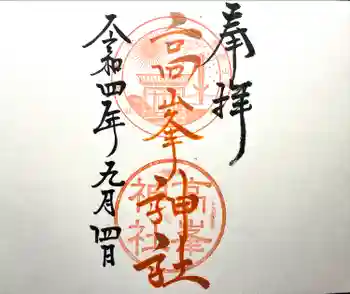 奉拝
高峯神社
高峯
神社
令和四年九月四日